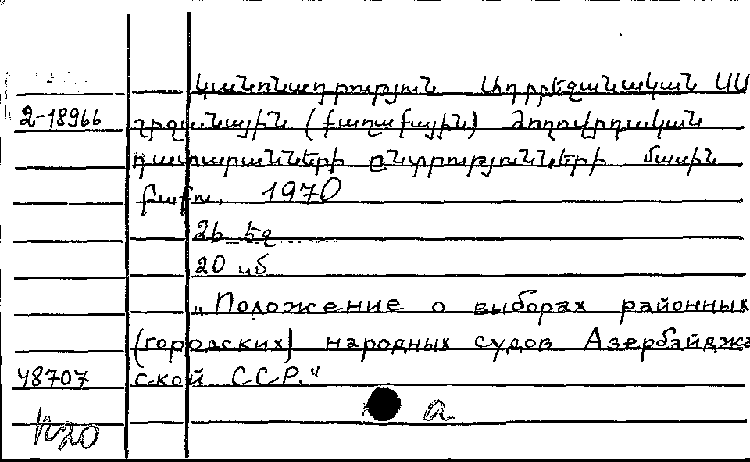 Կանոնադրություն Ադրբեջանական ՍՍ
2-18966 շրջանային (քաղաքային) ժողովրդական
դատարանների ընտրությունների մասին
Բաքու, 1970
26 եջ
20 սմ
„Положение о выборах районных
(городских) народных судов Азербайджа
48707 ской ССР."
а